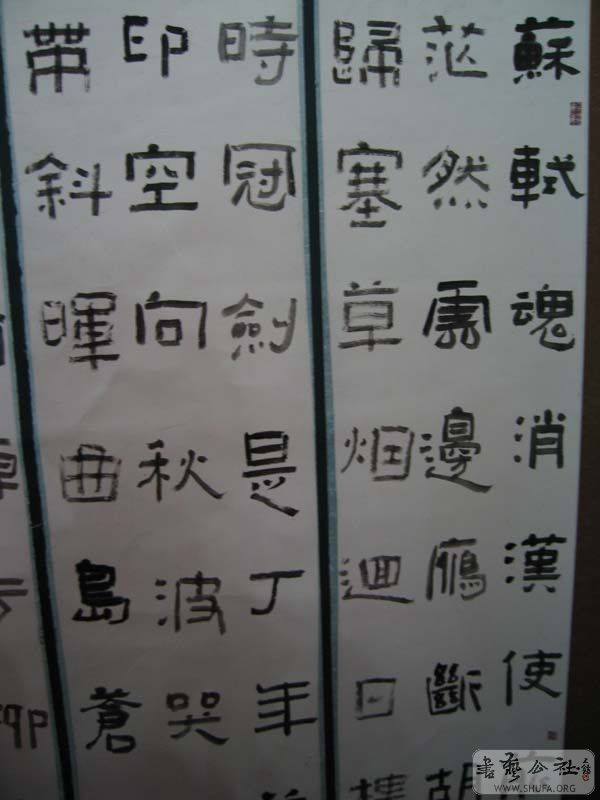 蘇軾魂消漢使
茫然雲邊鴈斷胡
歸塞草烟迴日樓
時冠劍是丁年
印空向秋波哭
帶斜暉曲島蒼
書藝公社
WWW.SHUFA.ORG